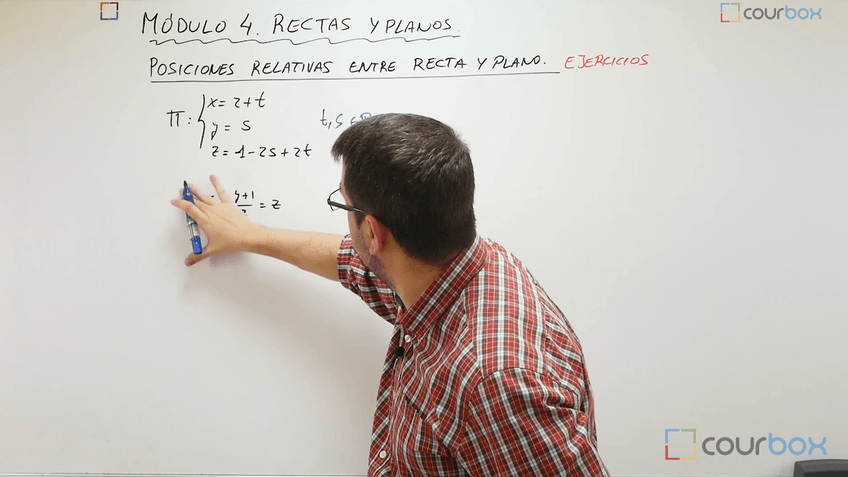 MÓDULO 4. RECTAS Y PLANOS.
courbox
POSICIONES RELATIVAS ENTRE RECTA Y PLANO. EJERCICIOS
π: x = 2 + t
y = s
t, s ∈
z = 1 - 2s + 2t
y+1
= z
courbox